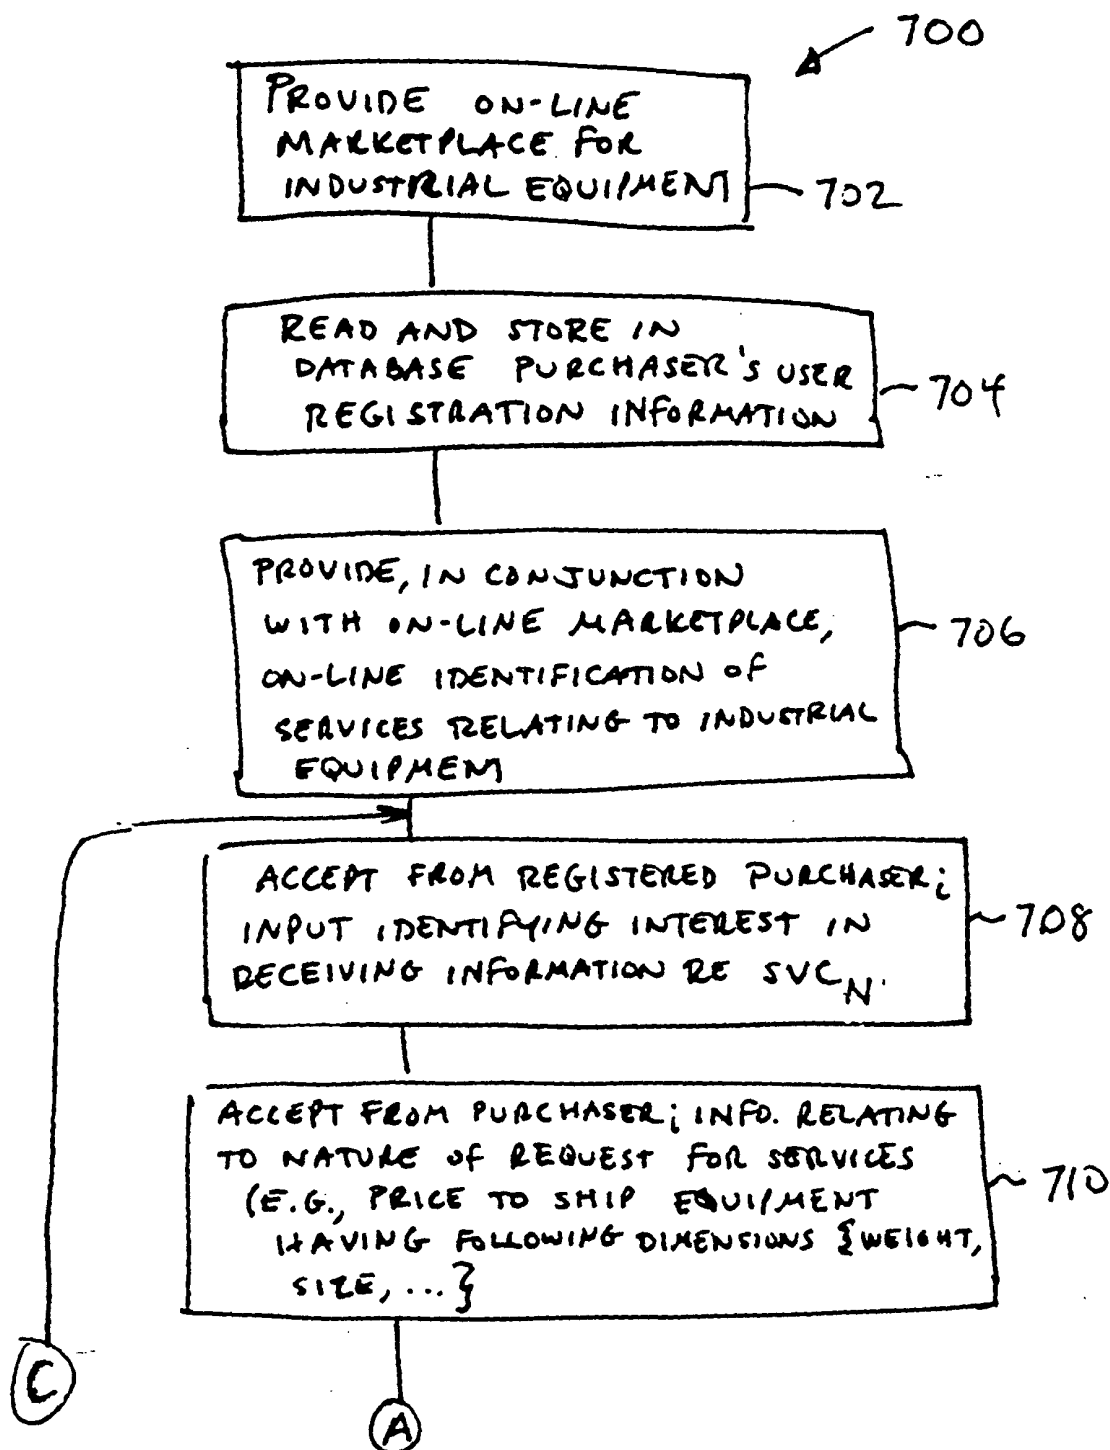 700
PROVIDE ON-LINE
MARKETPLACE FOR
INDUSTRIAL EQUIPMENT
702
READ AND STORE IN
DATABASE PURCHASER'S USER
REGISTRATION INFORMATION
704
PROVIDE, IN CONJUNCTION
WITH ON-LINE MARKETPLACE,
ON-LINE IDENTIFICATION OF
SERVICES RELATING TO INDUSTRIAL
EQUIPMENT
706
ACCEPT FROM REGISTERED PURCHASER;
INPUT IDENTIFYING INTEREST IN
RECEIVING INFORMATION RE SVC_N.
708
ACCEPT FROM PURCHASER; INFO. RELATING
TO NATURE OF REQUEST FOR SERVICES
(E.G., PRICE TO SHIP EQUIPMENT
HAVING FOLLOWING DIMENSIONS {WEIGHT,
SIZE, ...}
710
C
A